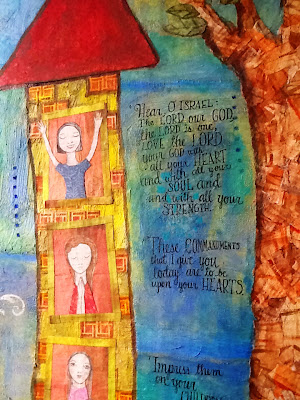 "Hear, O ISRAEL:
The LORD our GOD,
the LORD is one,
LOVE the LORD
your GOD with
all your HEART
and with all your
SOUL and
and with all your
STRENGTH.
These COMMANDMENTS
that I give you
today are to be
upon your HEARTS.
"Impress them
on your